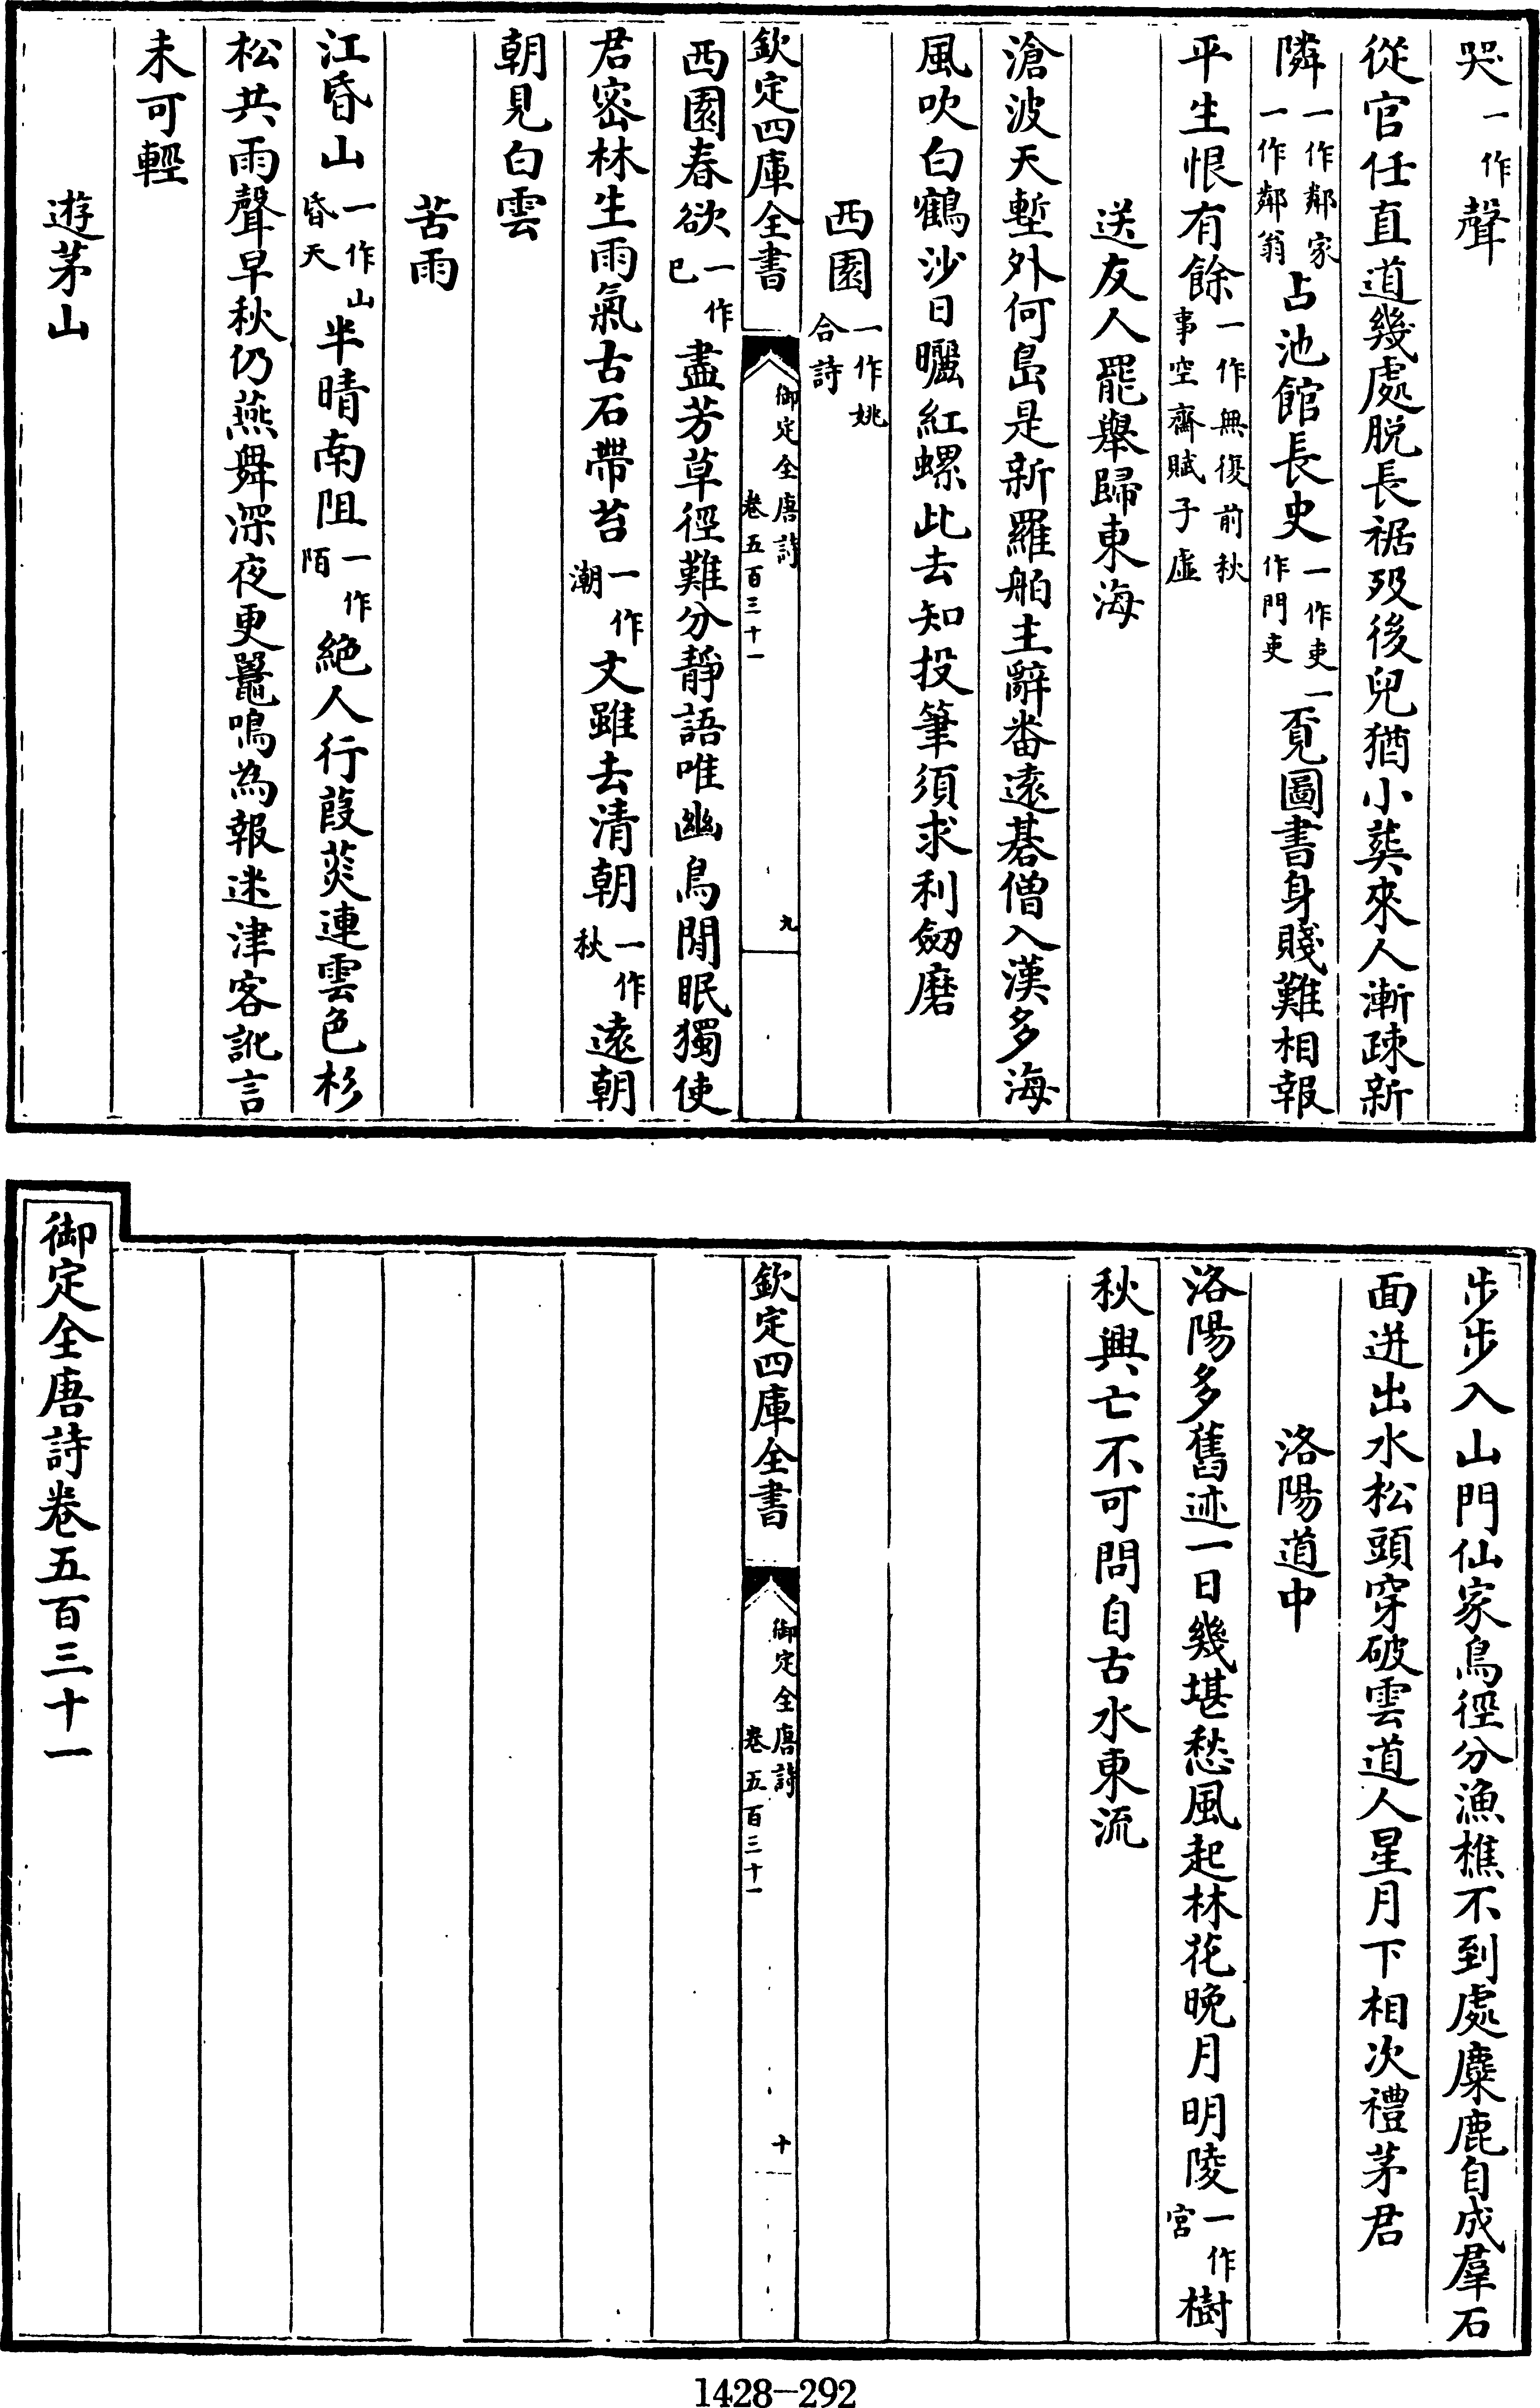 哭一作聲
從官任直道幾處脫長裾歿後兒猶小葬來人漸疎新
隣一作鄰家一作鄰翁占池館長史一作吏一作門吏覔圖書身賤難相報
平生恨有餘一作無復前秋事空齋賦子虛
送友人罷舉歸東海
滄波天塹外何島是新羅舶主辭番遠碁僧入漢多海
風吹白鶴沙日曬紅螺此去知投筆須求利劒磨
西園一作姚合詩
欽定四庫全書 御定全唐詩卷五百三十一 九
西園春欲一作已盡芳草徑難分靜語唯幽鳥閒眠獨使
君密林生雨氣古石帶苔一作潮文雖去清朝一作秋遠朝
朝見白雲
苦雨
江昏山一作山昏天半晴南阻一作陌絕人行葭菼連雲色杉
松共雨聲早秋仍燕舞深夜更鼉鳴為報迷津客訛言
未可輕
遊茅山
步步入山門仙家鳥徑分漁樵不到處麋鹿自成羣石
面迸出水松頭穿破雲道人星月下相次禮茅君
洛陽道中
洛陽多舊迹一日幾堪愁風起林花晚月明陵一作宮樹
秋興亡不可問自古水東流
欽定四庫全書 御定全唐詩卷五百三十一 十
御定全唐詩卷五百三十一
1428-292